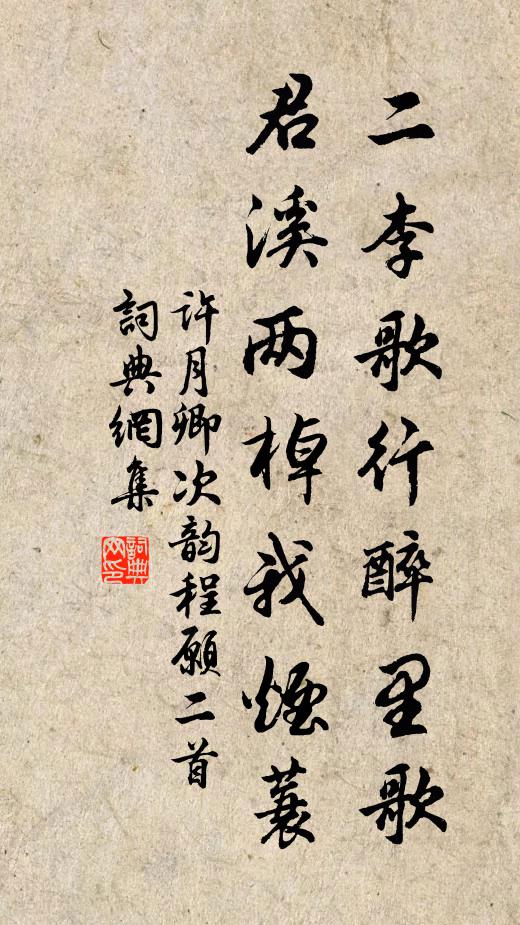 二李歌行醉里歌
君溪两棹我烟蓑
许月卿次韵程愿二首
詞典網集
詞典网印